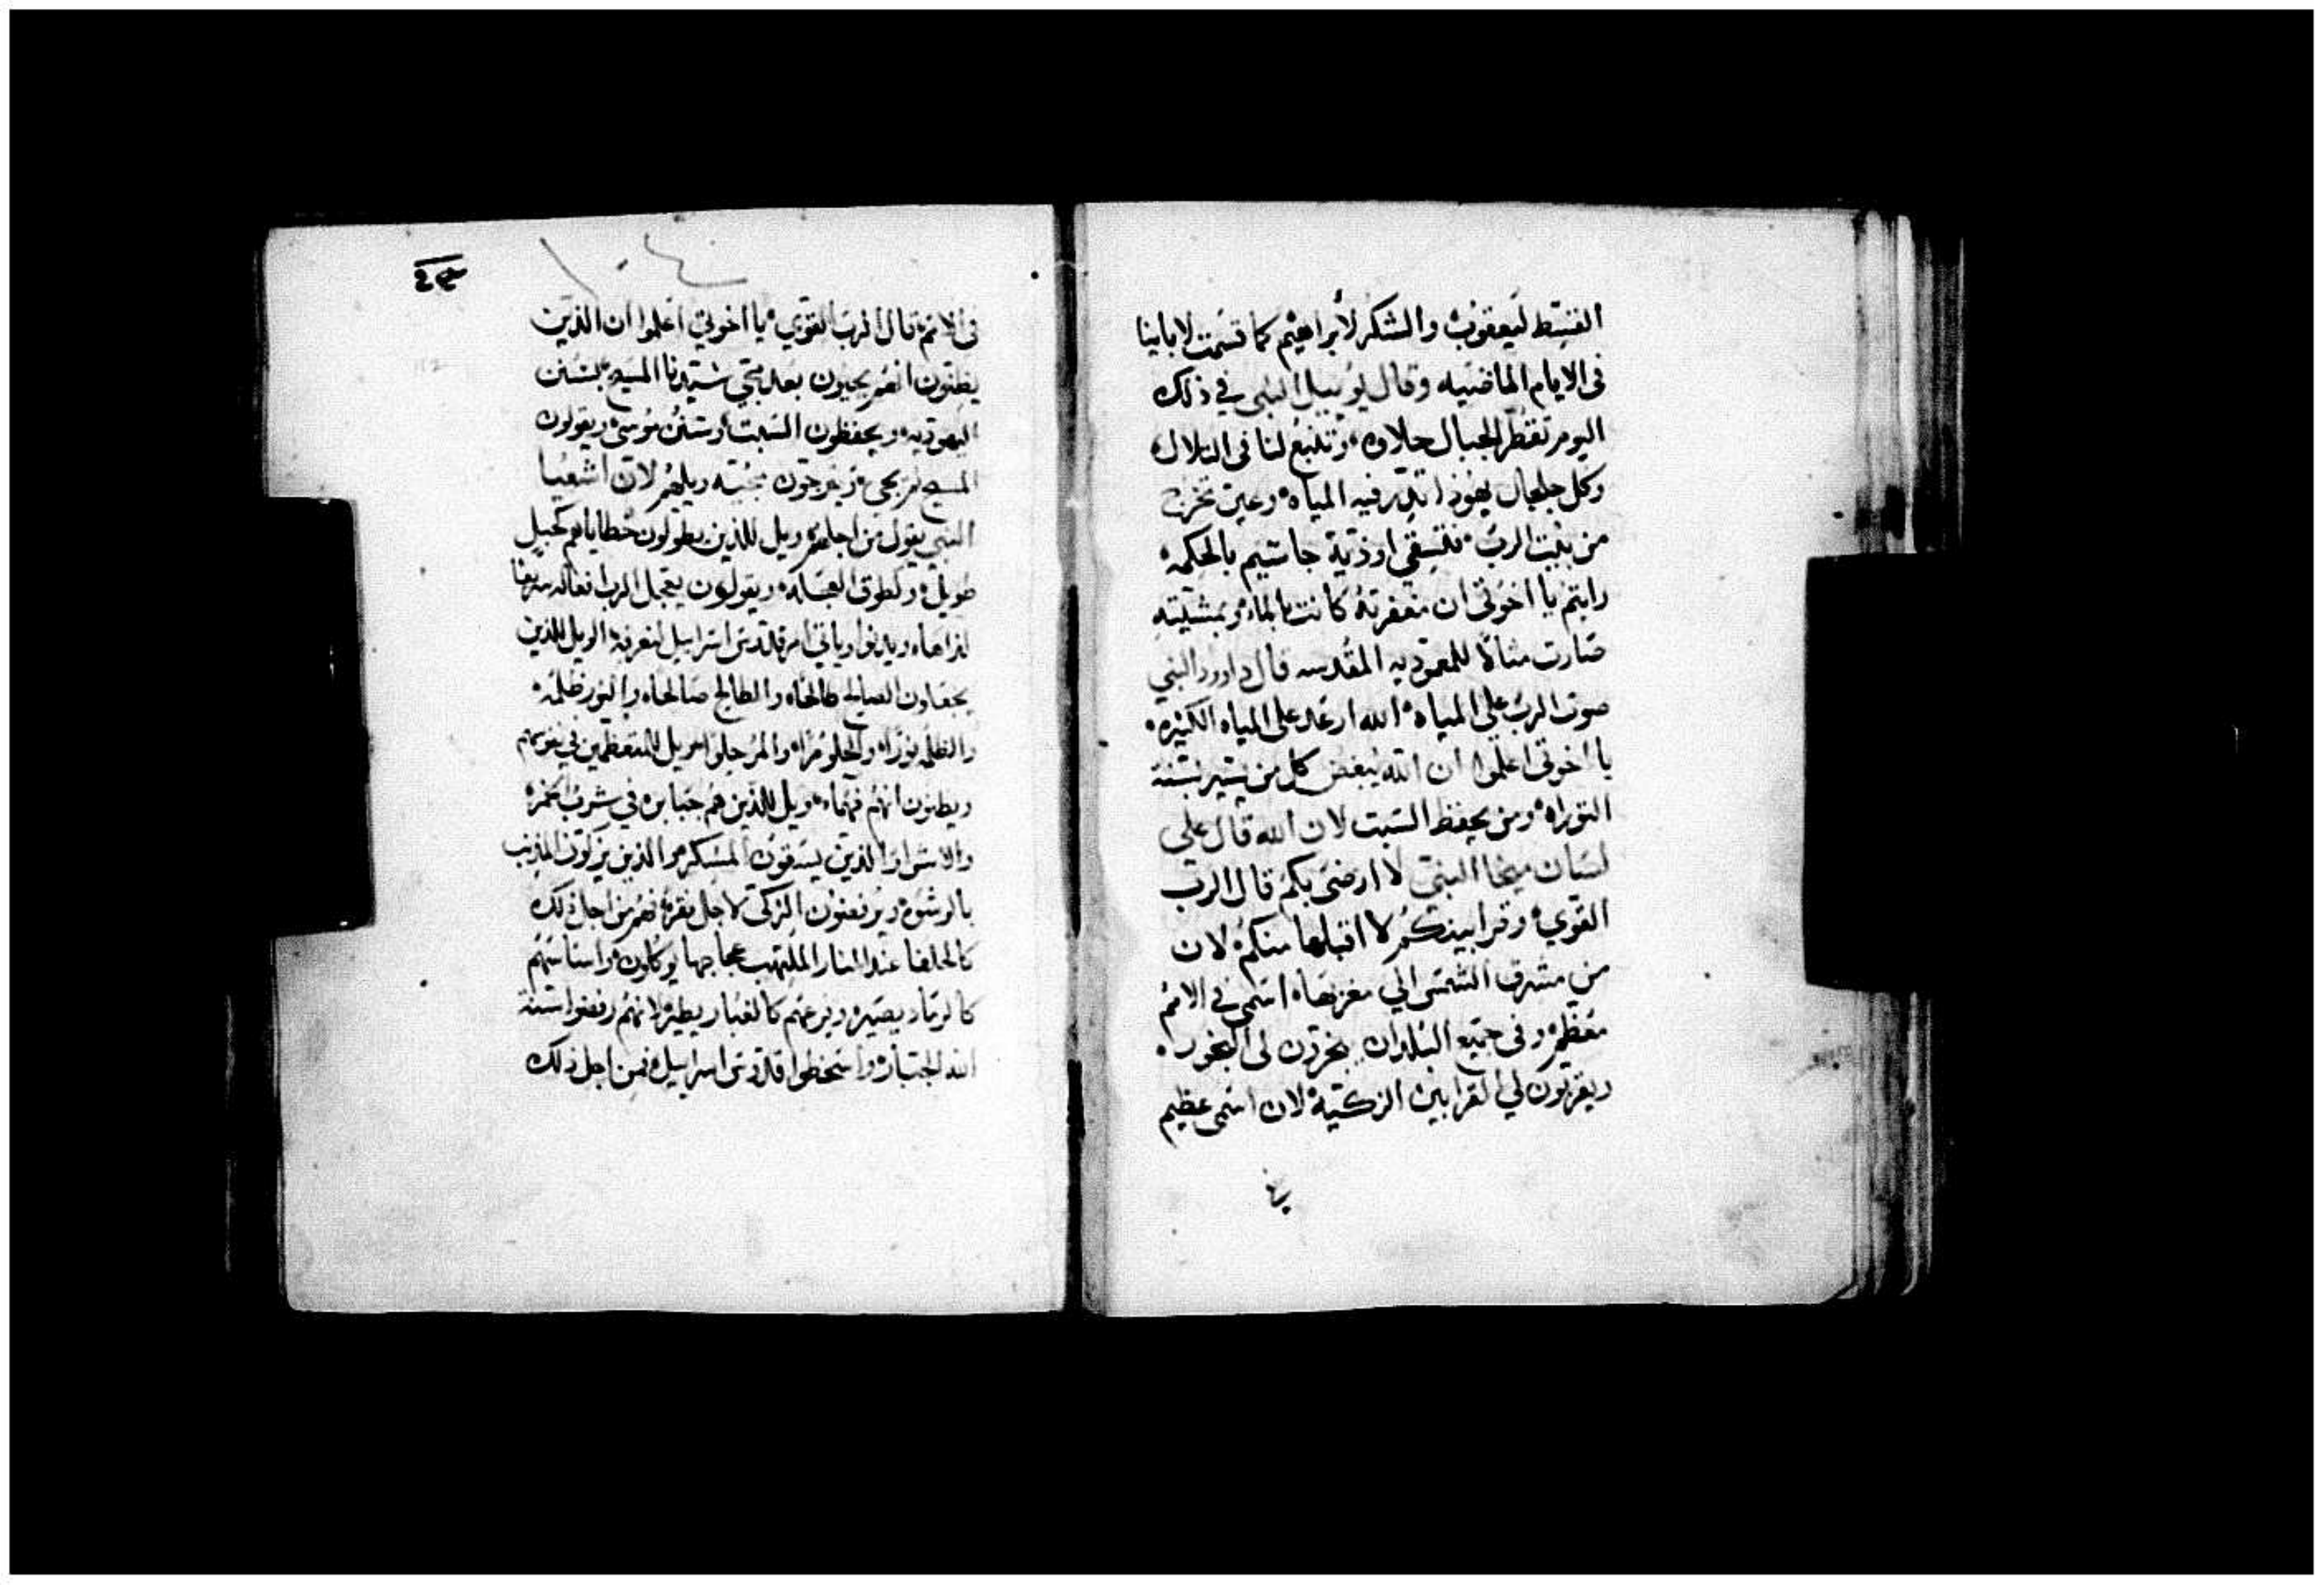 القسط ليعقوب والشكر لأبراهيم كما قسمت لاباينا
فى الايام الماضيه وقال يوييل النبى في ذلك
اليوم تقطر الجبال حلاوه وتنبع لنا فى التلال
وكل جلجال يهوذا تدر فيه المياه وعين تخرج
من بيت الرب فتسقي اوذية جاستيم بالحكمه
رايتم يا اخوتى ان مغفرته كانت بالماء وبمشيته
صارت مثالا للمعموديه المقدسه قال داوود النبي
صوت الرب على المياه الله ارعد على المياه الكثيره
يا اخوتى اعلموا ان الله يبغض كل من يسير بسنة
التوراه ومن يحفظ السبت لان الله قال على
لسان ميخا النبي لا ارضى بكم قال الرب
القوي وقرابينكم لا اقبلها منكم لان
من مشرق الشمس الي مغربها اسمى في الامم
معظم وفى جميع البلدان يبخرون لى البخور
ويقربون لي القرابين الزكيه لان اسمى عظيم
في
١٠٤
فى الامم قال الرب القوي يا اخوتي اعلموا ان الذين
يظنون انهم يحيون بعد مجي سيدنا المسيح بسنن
اليهوديه ويحفظون السبت وسنن موسى ويقولون
المسيح لم يجى ويرجون مجيه ويلهم لان اشعيا
النبي يقول من اجلهم ويل للذين يطولون خطاياهم كحبل
طويل وكطوق العجله ويقولون يعجل الرب افعاله سريعا
لنراها ويدنوا وياتي امر قدوس اسراييل لنعرفه الويل للذين
يجعلون الصالح طالحا والطالح صالحا والنور ظلمه
والظلمه نورا والحلو مرا والمر حلوا ويل للمتعظمين في نفوسهم
ويظنون انهم فهماء ويل للذين هم جبابره في شرب الخمر
والاشرار الذين يسقون المسكر والذين يزكون المذنب
بالرشوه ويرفعون الزكى لاجل فقره فهم من اجل ذلك
كالحلفا عند النار الملتهب عجاجها يوكلون واساسهم
كالرماد يصير وفرعهم كالغبار يطير لانهم رفضوا سنة
الله الجبار واسخطوا قدوس اسراييل فمن اجل ذلك